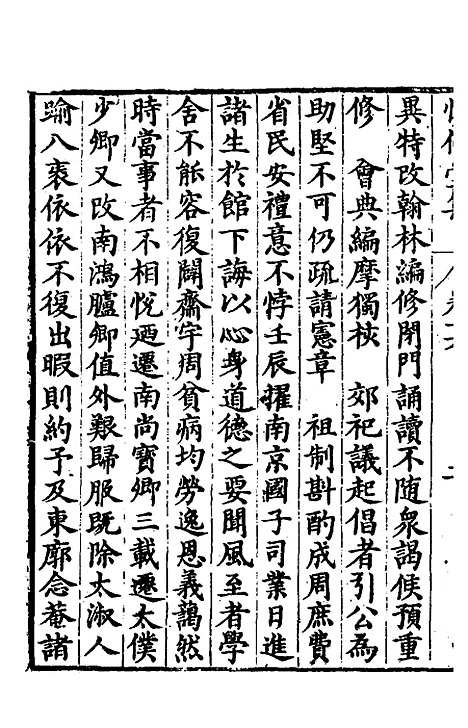 異特改翰林編修閉門誦讀不随衆謁候預重
修　會典編摩獨核　郊祀議起倡者引公為
助堅不可仍疏請憲章　祖制斟酌成周庶費
省民安禮意不悖壬辰擢南京國子司業日進
諸生於館下誨以心身道德之要聞風至者學
舍不能容復闢齋宇周貧病均勞逸恩義藹然
時當事者不相悅廼遷南尚寶卿三載遷太僕
少卿又改南鴻臚卿值外艱歸服既除太淑人
踰八袠依依不復出暇則約予及東廓念菴諸